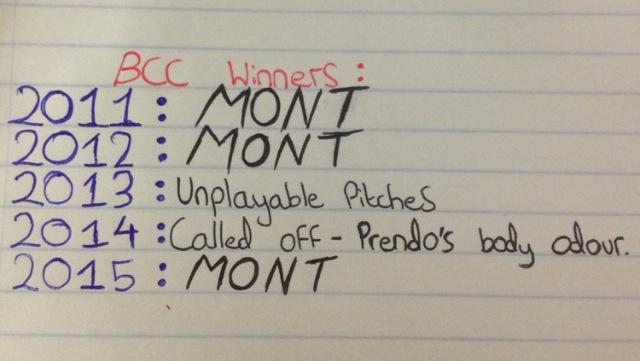 BCC Winners:
2011: MONT
2012: MONT
2013: Unplayable Pitches
2014: Called off - Prendo's body odour.
2015: MONT